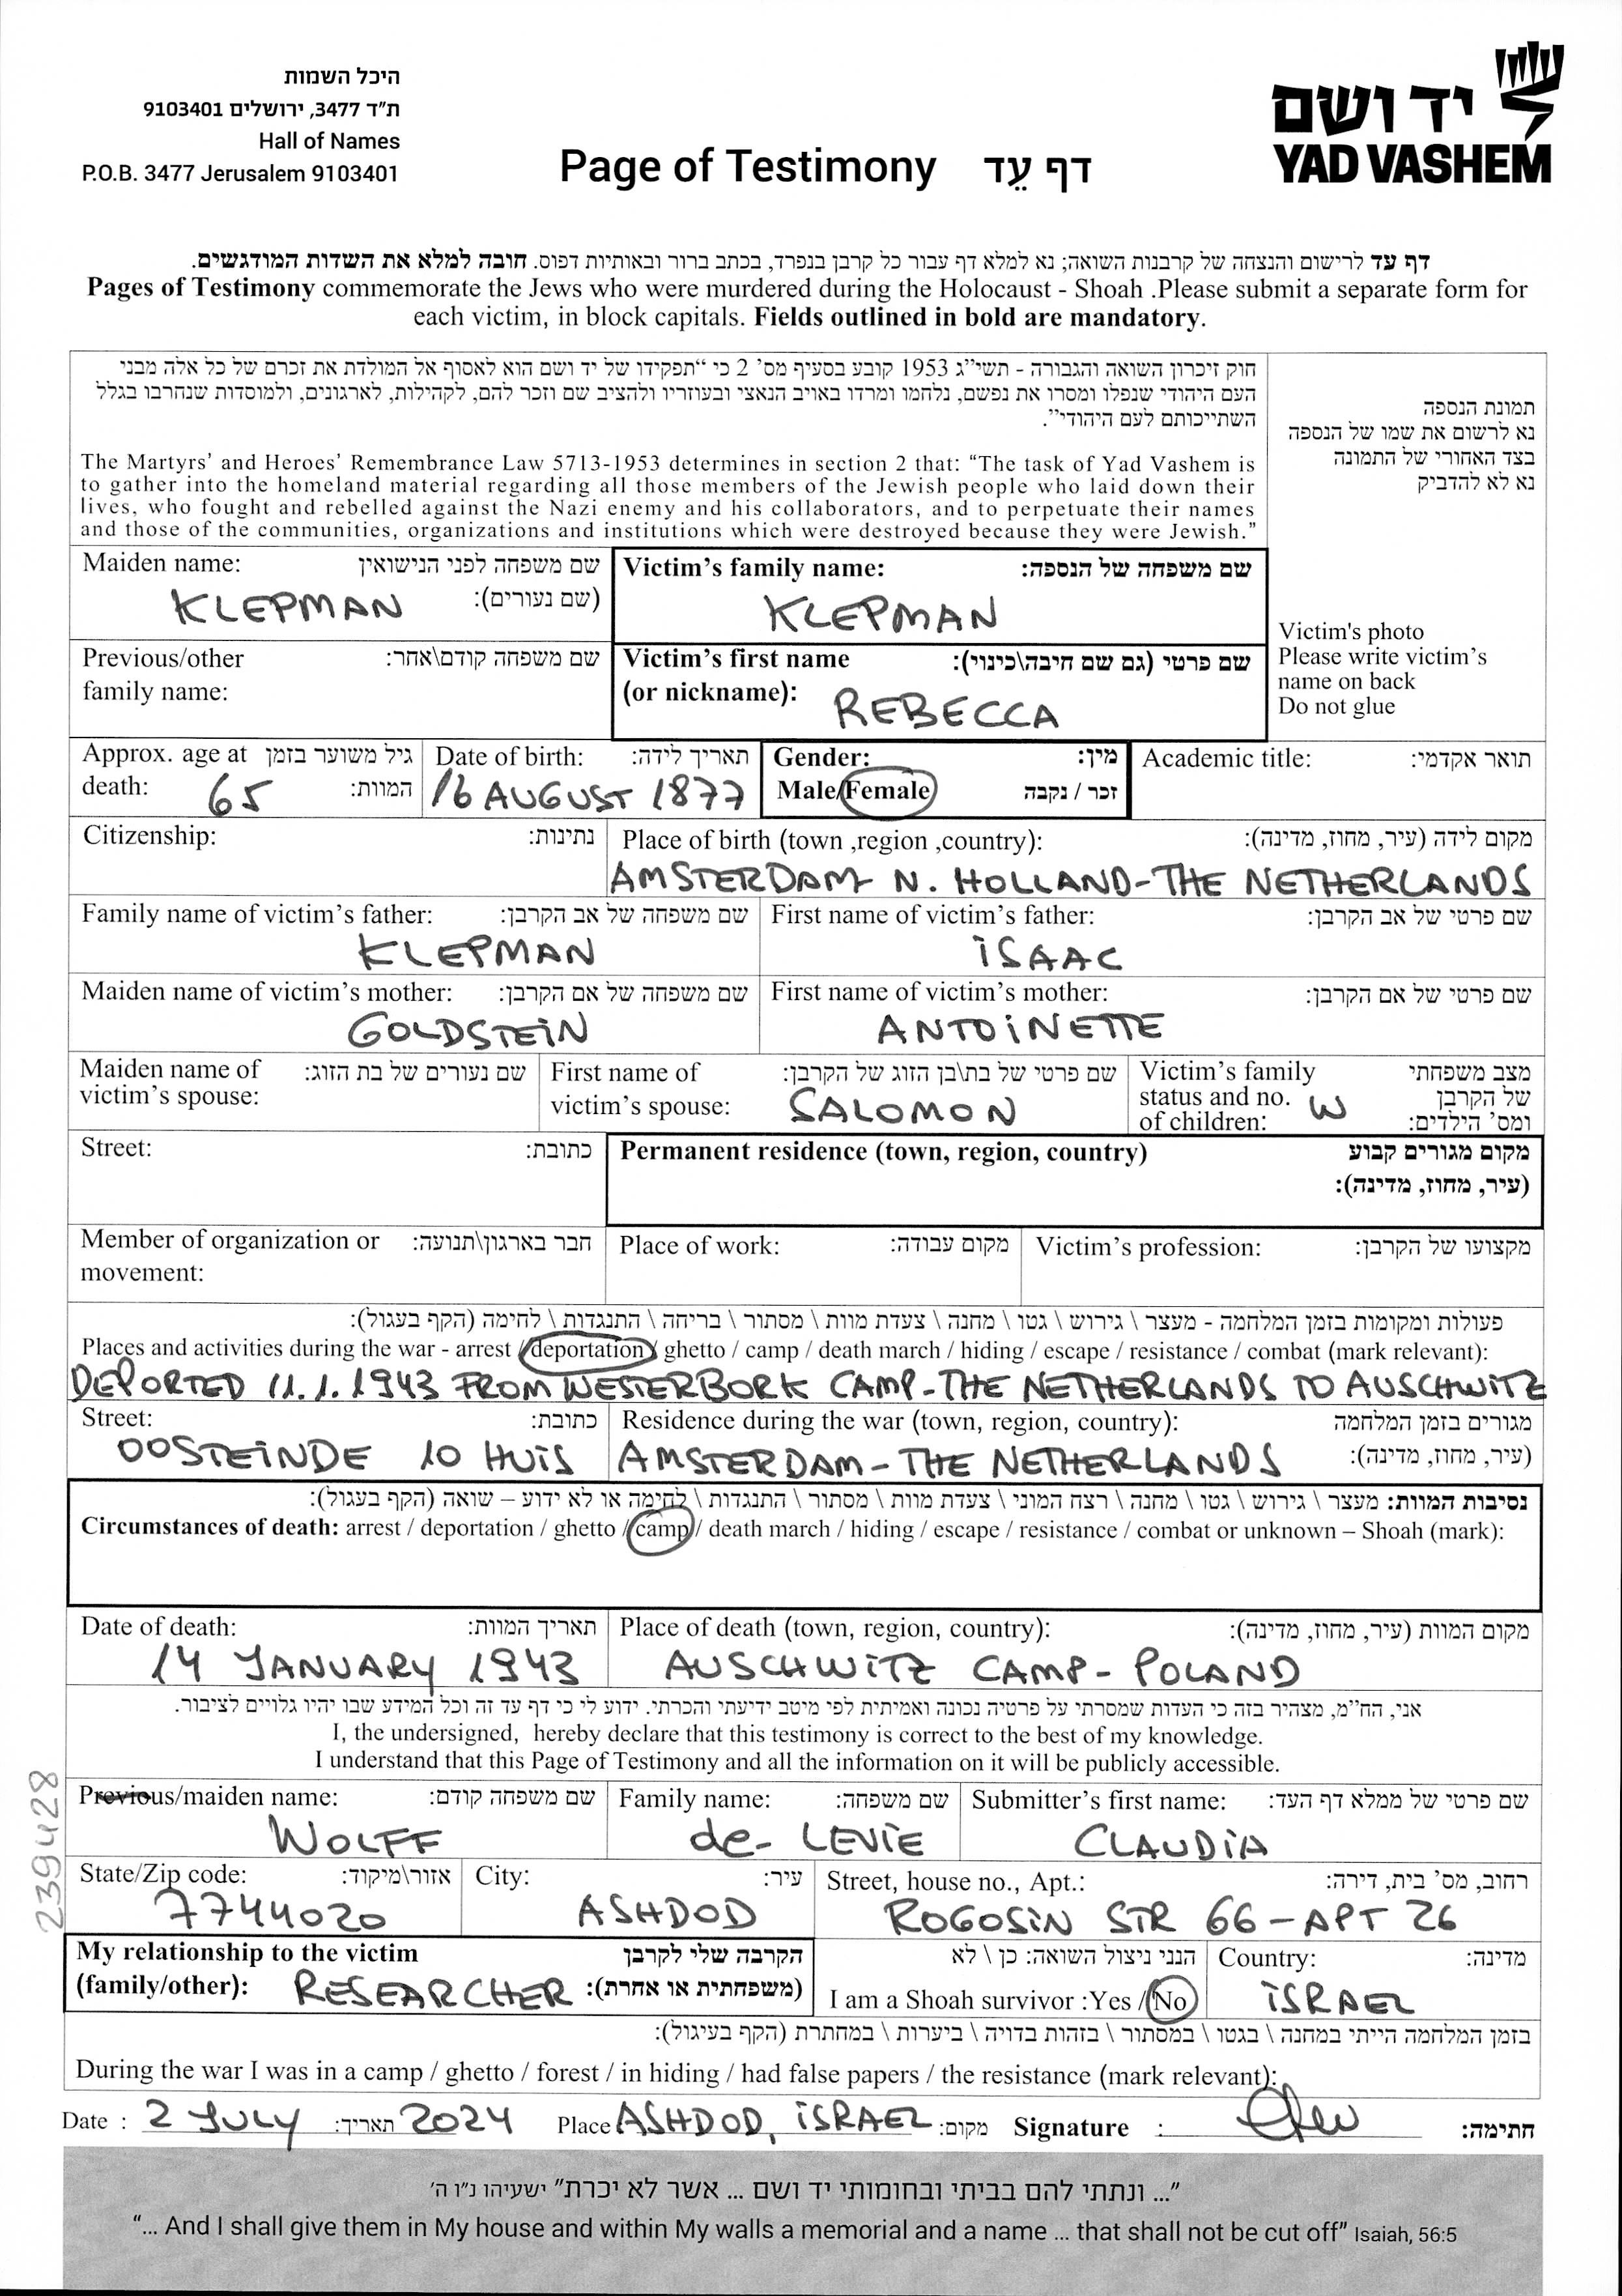 היכל השמות
ת"ד 3477, ירושלים 9103401
Hall of Names
P.O.B. 3477 Jerusalem 9103401
Page of Testimony דף עֵד
יד ושם
YAD VASHEM
דף עד לרישום והנצחה של קרבנות השואה; נא למלא דף עבור כל קרבן בנפרד, בכתב ברור ובאותיות דפוס. חובה למלא את השדות המודגשים.
Pages of Testimony commemorate the Jews who were murdered during the Holocaust - Shoah .Please submit a separate form for
each victim, in block capitals. Fields outlined in bold are mandatory.
חוק זיכרון השואה והגבורה - תשי"ג 1953 קובע בסעיף מס' 2 כי "תפקידו של יד ושם הוא לאסוף אל המולדת את זכרם של כל אלה מבני
העם היהודי שנפלו ומסרו את נפשם, נלחמו ומרדו באויב הנאצי ובעוזריו ולהציב שם וזכר להם, לקהילות, לארגונים, ולמוסדות שנחרבו בגלל
השתייכותם לעם היהודי".
The Martyrs' and Heroes' Remembrance Law 5713-1953 determines in section 2 that: "The task of Yad Vashem is
to gather into the homeland material regarding all those members of the Jewish people who laid down their
lives, who fought and rebelled against the Nazi enemy and his collaborators, and to perpetuate their names
and those of the communities, organizations and institutions which were destroyed because they were Jewish."
תמונת הנספה
נא לרשום את שמו של הנספה
בצד האחורי של התמונה
נא לא להדביק
Victim's photo
Please write victim's
name on back
Do not glue
Maiden name: שם משפחה לפני הנישואין
(שם נעורים):
KLEPMAN
Victim's family name: שם משפחה של הנספה:
KLEPMAN
Previous/other שם משפחה קודם\אחר:
family name:
Victim's first name שם פרטי (גם שם חיבה\כינוי):
(or nickname): REBECCA
Approx. age at גיל משוער בזמן
death: 65 המוות:
Date of birth: תאריך לידה:
16 AUGUST 1877
Gender: מין:
Male/Female זכר / נקבה
Academic title: תואר אקדמי:
Citizenship: נתינות:
Place of birth (town ,region ,country): מקום לידה (עיר, מחוז, מדינה):
AMSTERDAM - N. HOLLAND-THE NETHERLANDS
Family name of victim's father: שם משפחה של אב הקרבן:
KLEPMAN
First name of victim's father: שם פרטי של אב הקרבן:
ISAAC
Maiden name of victim's mother: שם משפחה של אם הקרבן:
GOLDSTEIN
First name of victim's mother: שם פרטי של אם הקרבן:
ANTOINETTE
Maiden name of שם נעורים של בת הזוג:
victim's spouse:
First name of שם פרטי של בת\בן הזוג של הקרבן:
victim's spouse: SALOMON
Victim's family מצב משפחתי
status and no. W של הקרבן
of children: ומס' הילדים:
Street: כתובת:
Permanent residence (town, region, country) מקום מגורים קבוע
(עיר, מחוז, מדינה):
Member of organization or חבר בארגון\תנועה:
movement:
Place of work: מקום עבודה:
Victim's profession: מקצועו של הקרבן:
פעולות ומקומות בזמן המלחמה - מעצר \ גירוש \ גטו \ מחנה \ צעדת מוות \ מסתור \ בריחה \ התנגדות \ לחימה (הקף בעגול):
Places and activities during the war - arrest / deportation / ghetto / camp / death march / hiding / escape / resistance / combat (mark relevant):
DEPORTED 11.1.1943 FROM WESTERBORK CAMP-THE NETHERLANDS TO AUSCHWITZ
Street: כתובת:
OOSTEINDE 10 HUIS
Residence during the war (town, region, country): מגורים בזמן המלחמה
(עיר, מחוז, מדינה):
AMSTERDAM - THE NETHERLANDS
נסיבות המוות: מעצר \ גירוש \ גטו \ מחנה \ רצח המוני \ צעדת מוות \ מסתור \ התנגדות \ לחימה או לא ידוע – שואה (הקף בעגול):
Circumstances of death: arrest / deportation / ghetto / camp / death march / hiding / escape / resistance / combat or unknown – Shoah (mark):
Date of death: תאריך המוות:
14 JANUARY 1943
Place of death (town, region, country): מקום המוות (עיר, מחוז, מדינה):
AUSCHWITZ CAMP - POLAND
אני, הח"מ, מצהיר בזה כי העדות שמסרתי על פרטיה נכונה ואמיתית לפי מיטב ידיעתי והכרתי. ידוע לי כי דף עד זה וכל המידע שבו יהיו גלויים לציבור.
I, the undersigned, hereby declare that this testimony is correct to the best of my knowledge.
I understand that this Page of Testimony and all the information on it will be publicly accessible.
Previous/maiden name: שם משפחה קודם:
WOLFF
Family name: שם משפחה:
de- LEVIE
Submitter's first name: שם פרטי של ממלא דף העד:
CLAUDIA
State/Zip code: אזור\מיקוד:
7744020
City: עיר:
ASHDOD
Street, house no., Apt.: רחוב, מס' בית, דירה:
ROGOSIN STR 66 - APT 26
My relationship to the victim הקרבה שלי לקרבן
(family/other): RESEARCHER (משפחתית או אחרת):
הנני ניצול השואה: כן \ לא
I am a Shoah survivor :Yes / No
Country: מדינה:
ISRAEL
בזמן המלחמה הייתי במחנה \ בגטו \ במסתור \ בזהות בדויה \ ביערות \ במחתרת (הקף בעיגול):
During the war I was in a camp / ghetto / forest / in hiding / had false papers / the resistance (mark relevant):
Date : 2 JULY 2024 תאריך: Place ASHDOD, ISRAEL מקום: Signature : חתימה:
"... ונתתי להם בביתי ובחומותי יד ושם ... אשר לא יכרת" ישעיהו נ"ו ה'
"... And I shall give them in My house and within My walls a memorial and a name ... that shall not be cut off" Isaiah, 56:5
239428